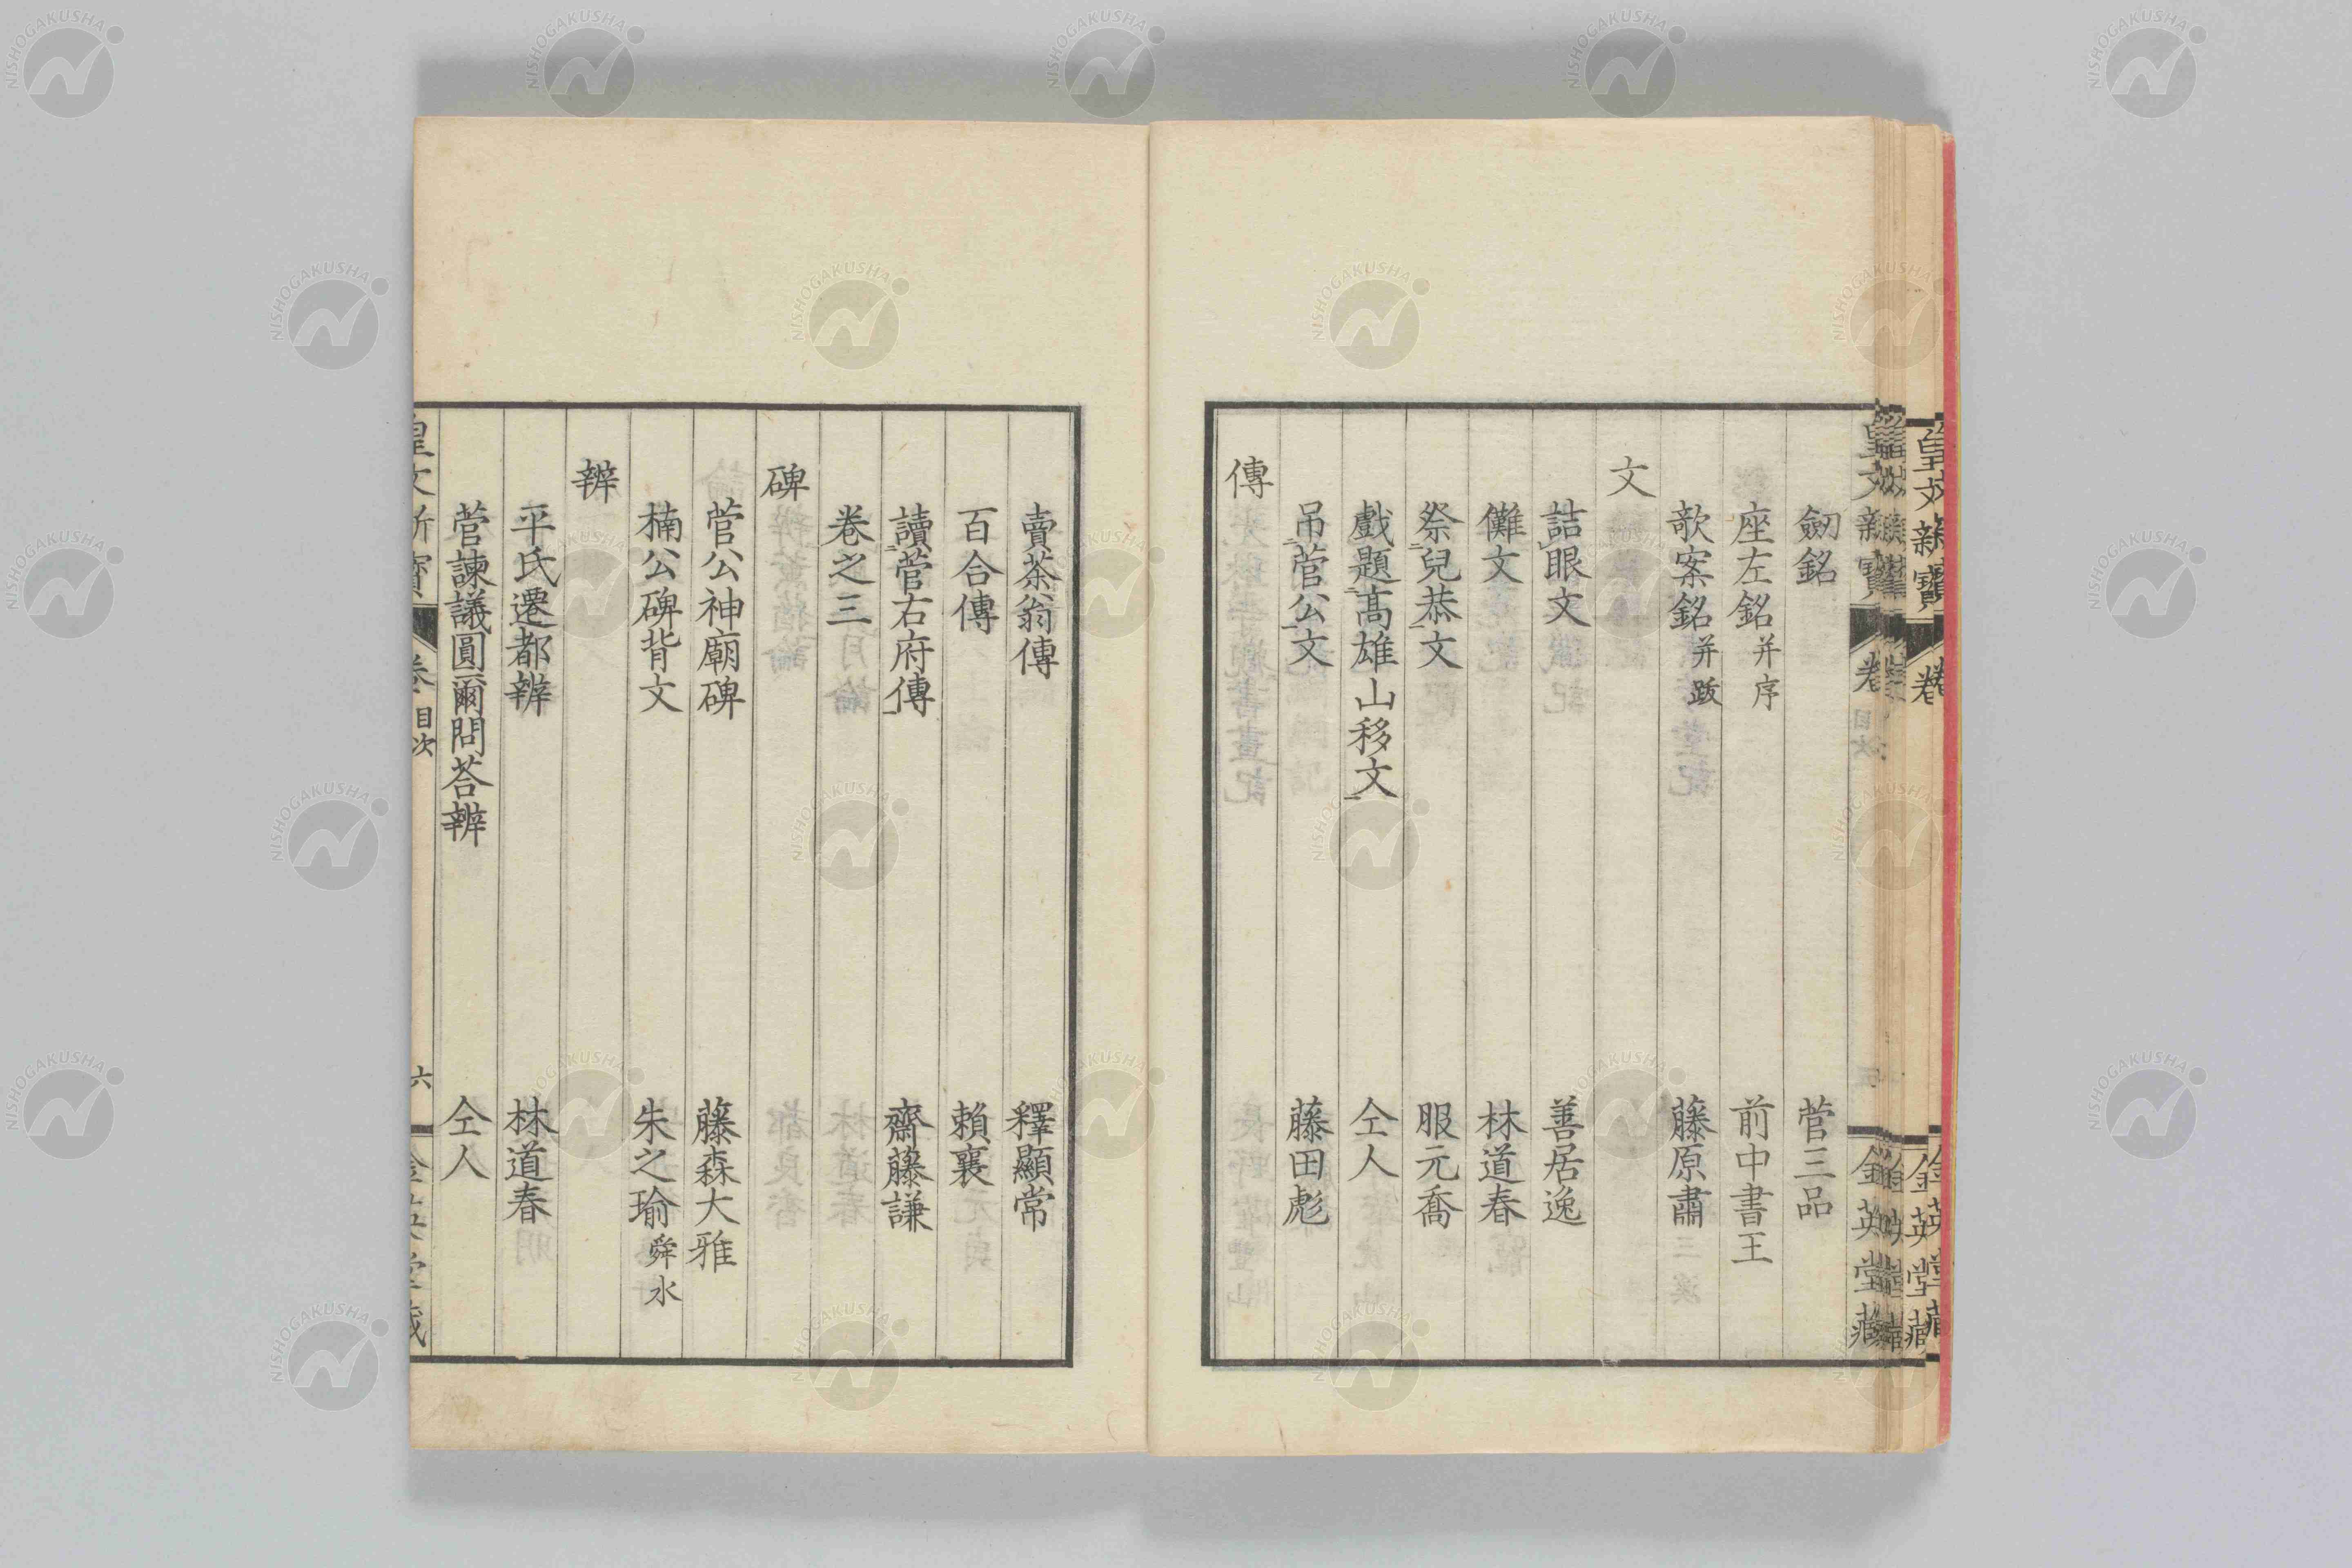 劒銘 菅三品
座左銘 并序 前中書王
歌案銘 并跋 藤原肅
文
詰眼文 善居逸
儺文 林道春
祭兒恭文 服元喬
戲題高雄山移文 仝人
吊菅公文 藤田彪
傳
賣茶翁傳 釋顯常
百合傳 賴襄
讀菅右府傳 齋藤謙
卷之三
碑
菅公神廟碑 藤森大雅
楠公碑背文 朱之瑜 舜水
辨
平氏遷都辨 林道春
菅諫議圓爾問荅辨 仝人
目次
六
皇文新寶
卷
金英堂藏
NISHOGAKUSHA